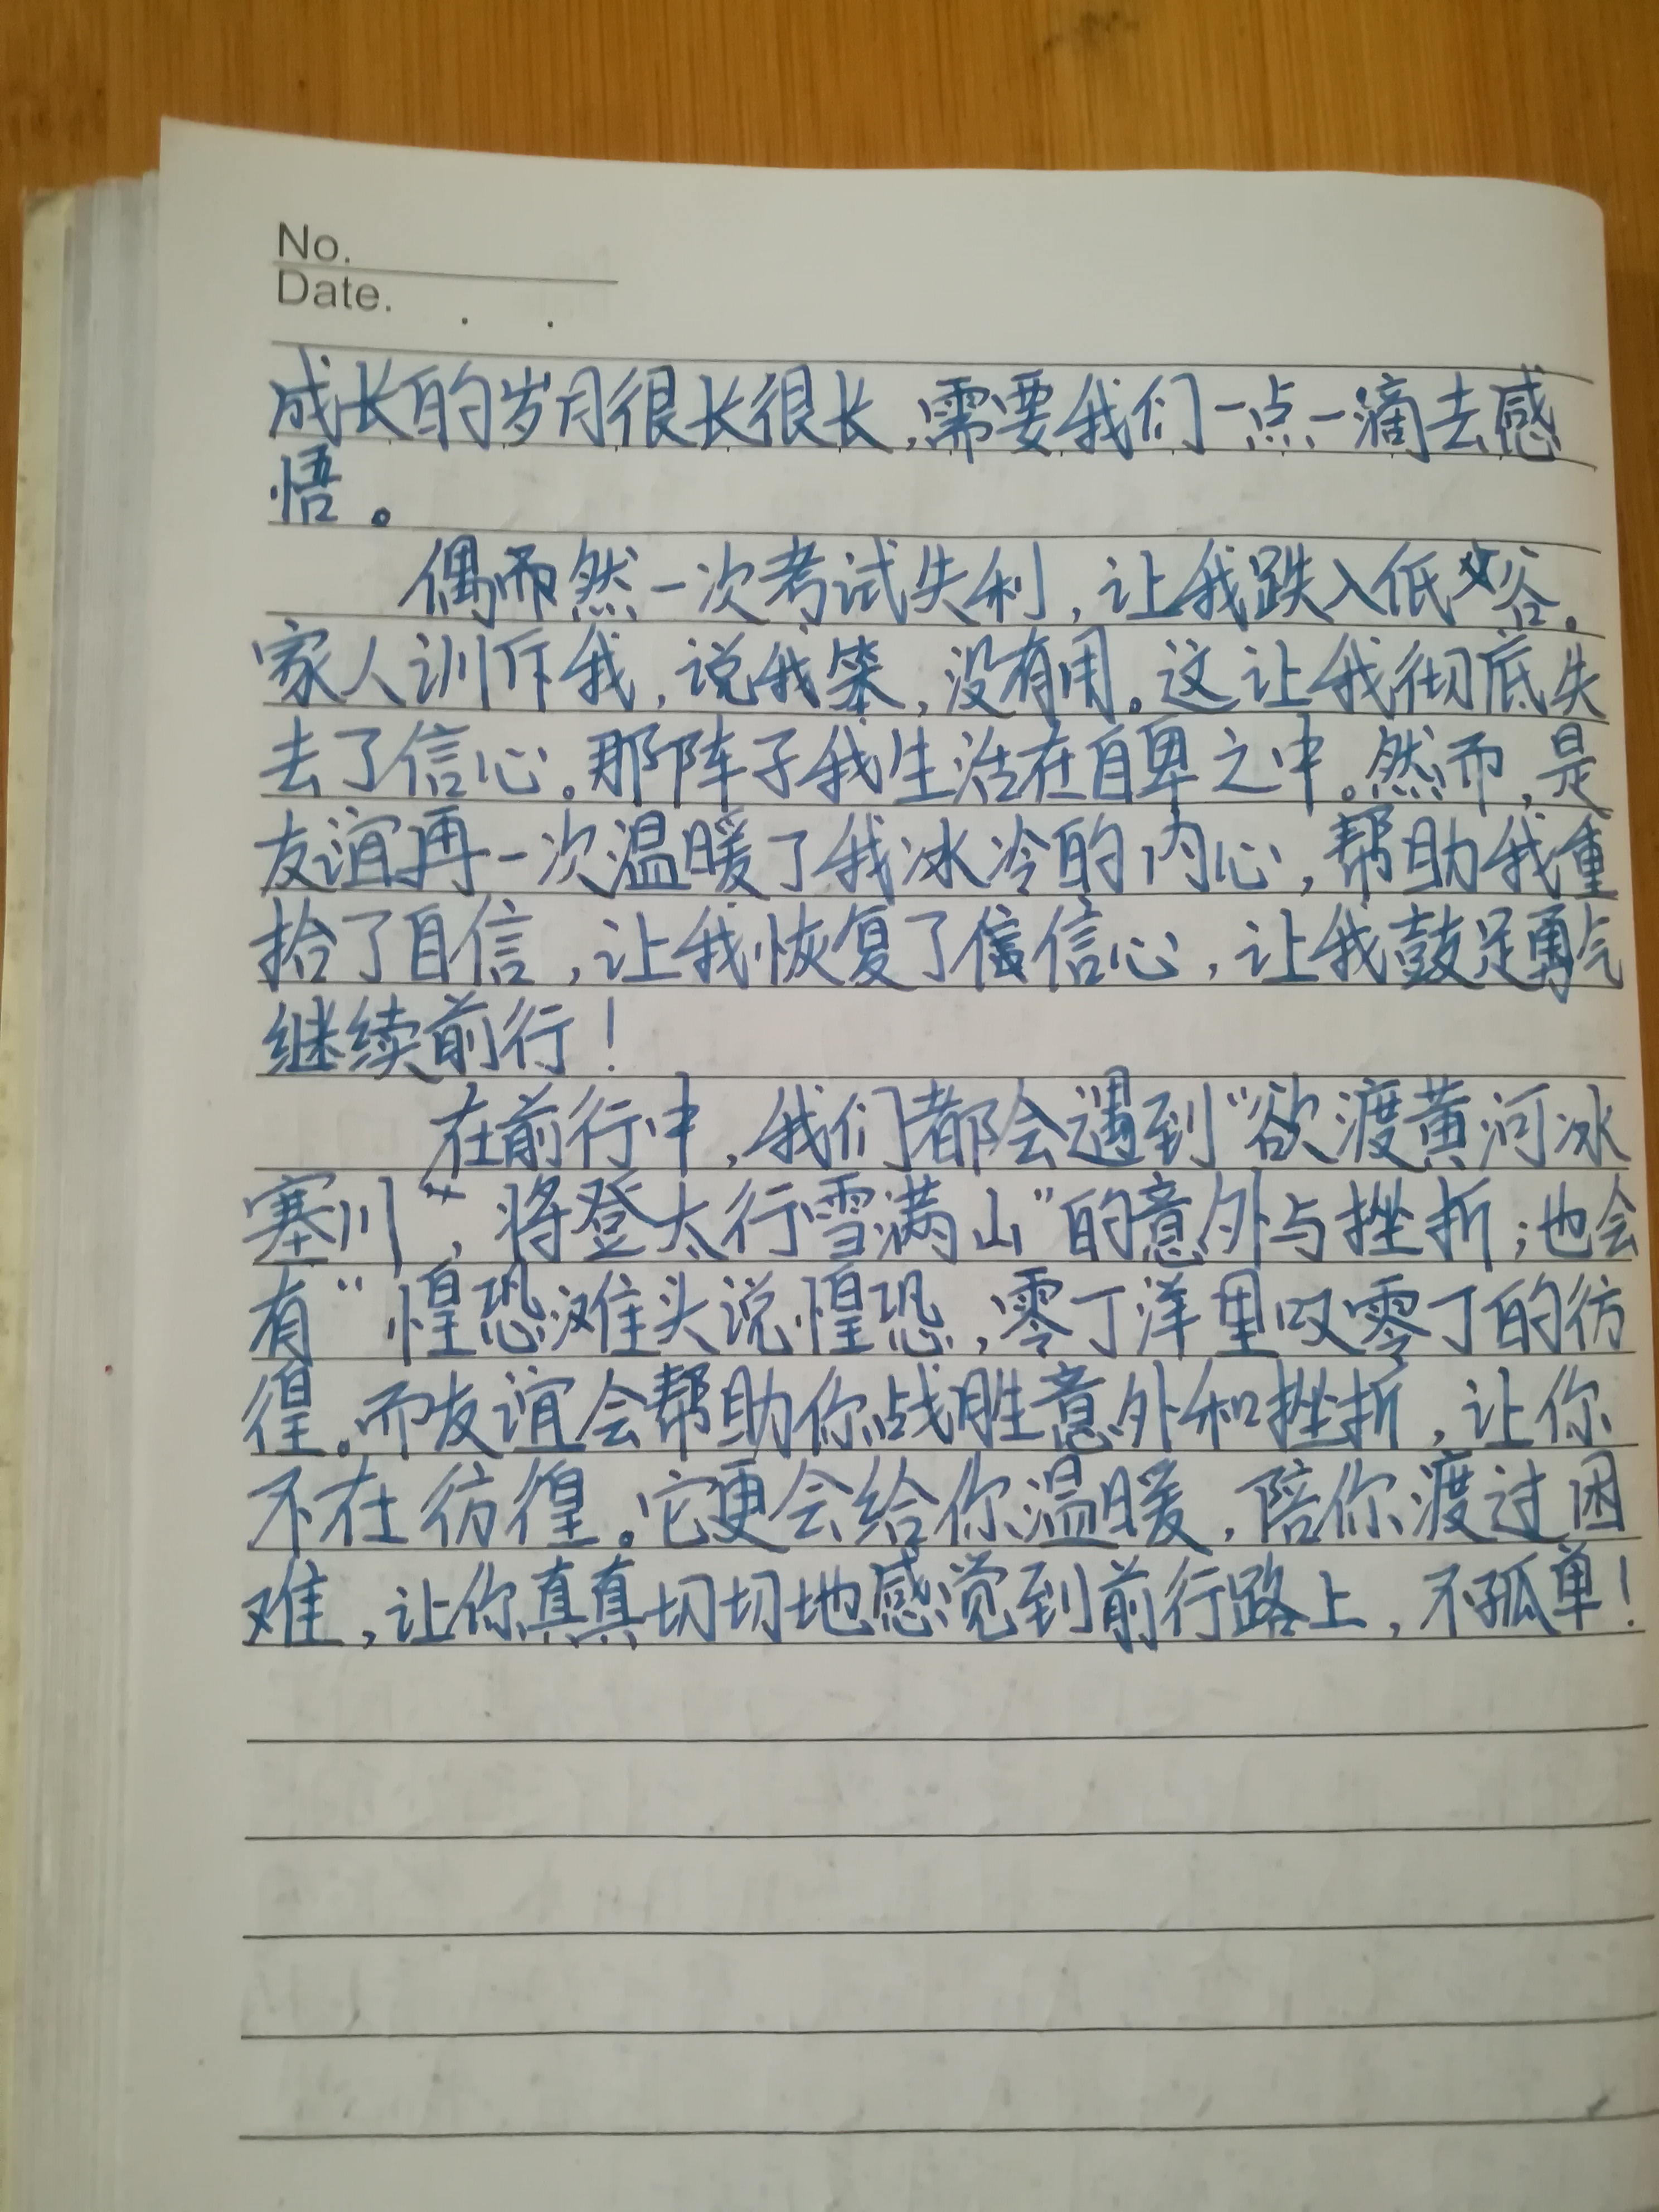 No.
Date.
成长的岁月很长很长,需要我们一点一滴去感
悟。
偶而然一次考试失利,让我跌入低谷。
家人训斥我,说我笨,没有用。这让我彻底失
去了信心。那阵子我生活在自卑之中。然而,是
友谊再一次温暖了我冰冷的内心,帮助我重
拾了自信,让我恢复了信心,让我鼓足勇气
继续前行!
在前行中,我们都会遇到“欲渡黄河冰
塞川,将登太行雪满山”的意外与挫折;也会
有“惶恐滩头说惶恐,零丁洋里叹零丁的彷
徨。而友谊会帮助你战胜意外和挫折,让你
不在彷徨。它更会给你温暖,陪你渡过困
难,让你真真切切地感觉到前行路上,不孤单!